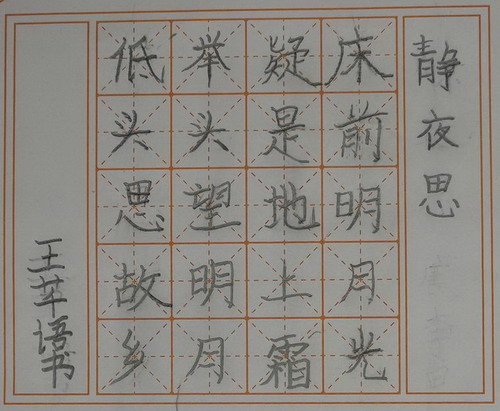 静夜思
床前明月光
疑是地上霜
举头望明月
低头思故乡
王芊语书